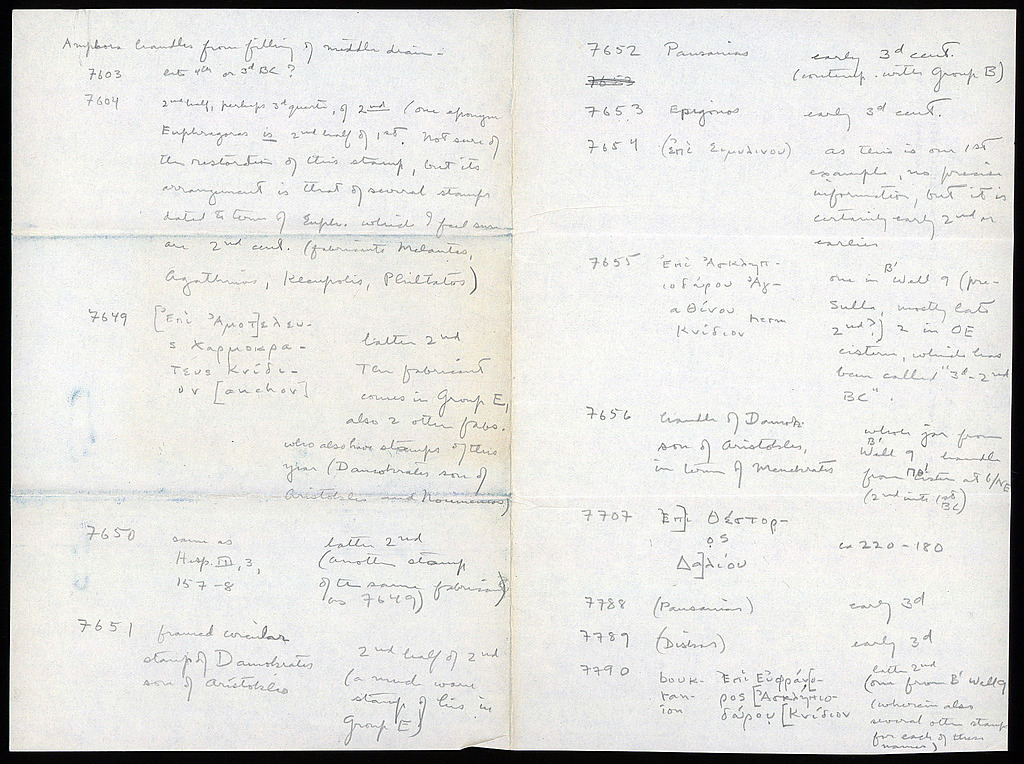 Amphora handles from filling of middle drain -
7603 late 4th or 3d BC ?
7604 2nd half, perhaps 3d quarter, of 2nd (one eponym
Euphragoras is 2nd half of 1st. Not sure of
the restoration of this stamp, but its
arrangement is that of several stamps
dated to term of Euphr. which I feel sure
are 2nd cent. (fabricants Melantas,
Agathinos, Kleupolis, Philtatos)
7649 [Ἐπὶ Ἀμοπ]ελευ-
ς Χαρμοκρα- latter 2nd
τευς Κνίδι- The fabricant
ον [anchor] comes in Group E,
also 2 other fabs.
who also have stamps of this
year (Damokrates son of
Aristokles and Noumenios)
7650 same as latter 2nd
Hesp. III, 3, (another stamp
157-8 of the same fabricant
as 7649)
7651 framed circular
stamp of Damokrates 2nd half of 2nd
son of Aristokles (a much worn
stamp of his in
Group E)
7652 Pausanias early 3d cent.
(contemp. with Group B)
7653
7653 Epigonos early 3d cent.
7654 (Ἐπὶ Σιμυλίνου) as this is our 1st
example, no precise
information, but it is
certainly early 2nd or
earlier
7655 Ἐπὶ Ἀσκληπ-
ιοδώρου Ἀγ- one in B' Well 9 (pre-
αθίνου herm Sulla, mostly late
Κνίδιον 2nd?) 2 in OE
cistern, which has
been called "3d-2nd
BC".
7656 handle of Damok. whole jar from
son of Aristokles, B' Well 9 handle
in term of Menekrates from cistern at 6/NE
(2nd into 1st
BC)
7707 Ἐπ]ὶ Θέστορ-
ος ca 220-180
Δα]λίου
7788 (Pausanias) early 3d
7789 (Diskos) early 3d
7790 bouk- Ἐπὶ Εὐφράνο- latter 2nd
ran- ρος [Ἀσκληπιο- (one from B' Well 9
ion δώρου [Κνίδιον (wherein also
several other stamps
for each of these
names)